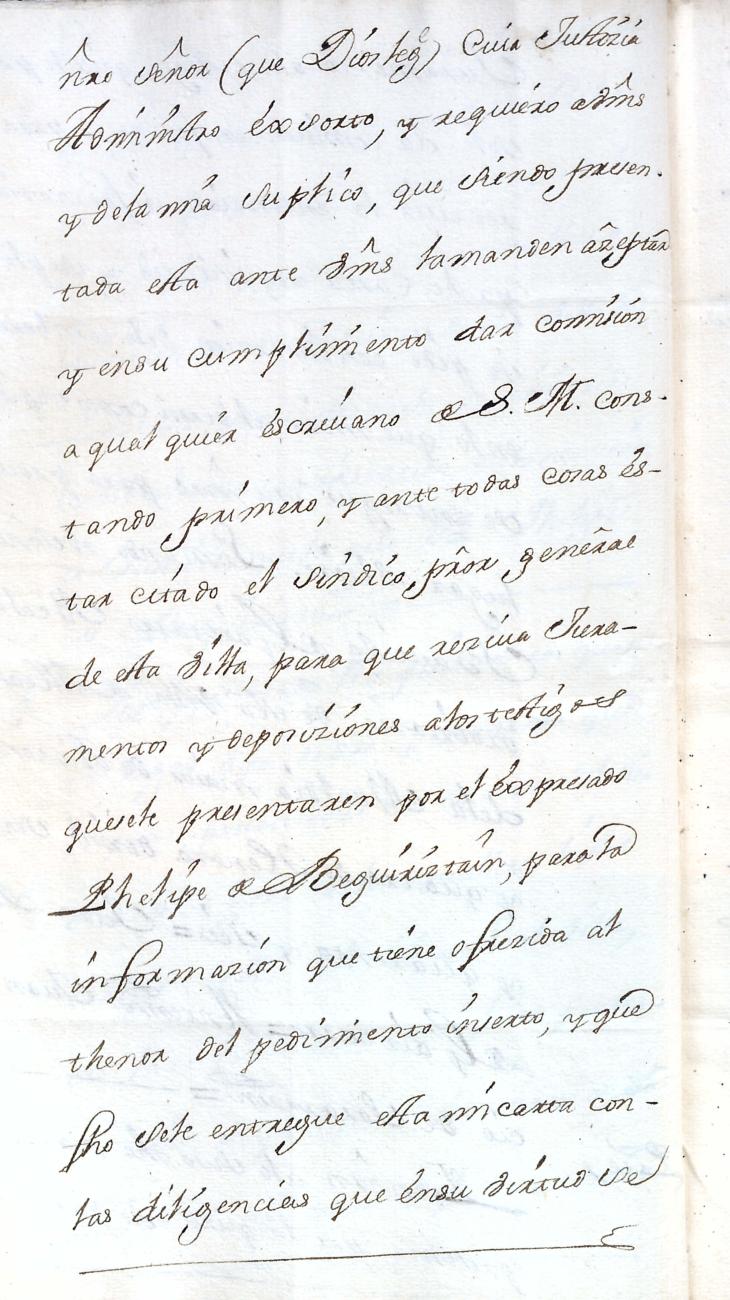 nro señor (que Dios gue) Cuia Justizia
Administro exsorto, y requiero a vms
y dela mia suplico, que siendo presen-
tada esta ante vms lamanden azeptar
y ensu cumplimiento dar comision
a qual quier escriuano de S. M. cons-
tando primero, y ante todas cosas és-
tar citado el sindico, pror general
de esta villa, para que reziua Jura-
mentos y deposiziones alos testigos
quesele presentaren por el éxpresado
Phelipe de Beguiriztain, para la
informazion que tiene ofrezida al
thenor del pedimento inserto, y que
fho sele entregue esta mi carta con-
las diligencias que énsu virtud se